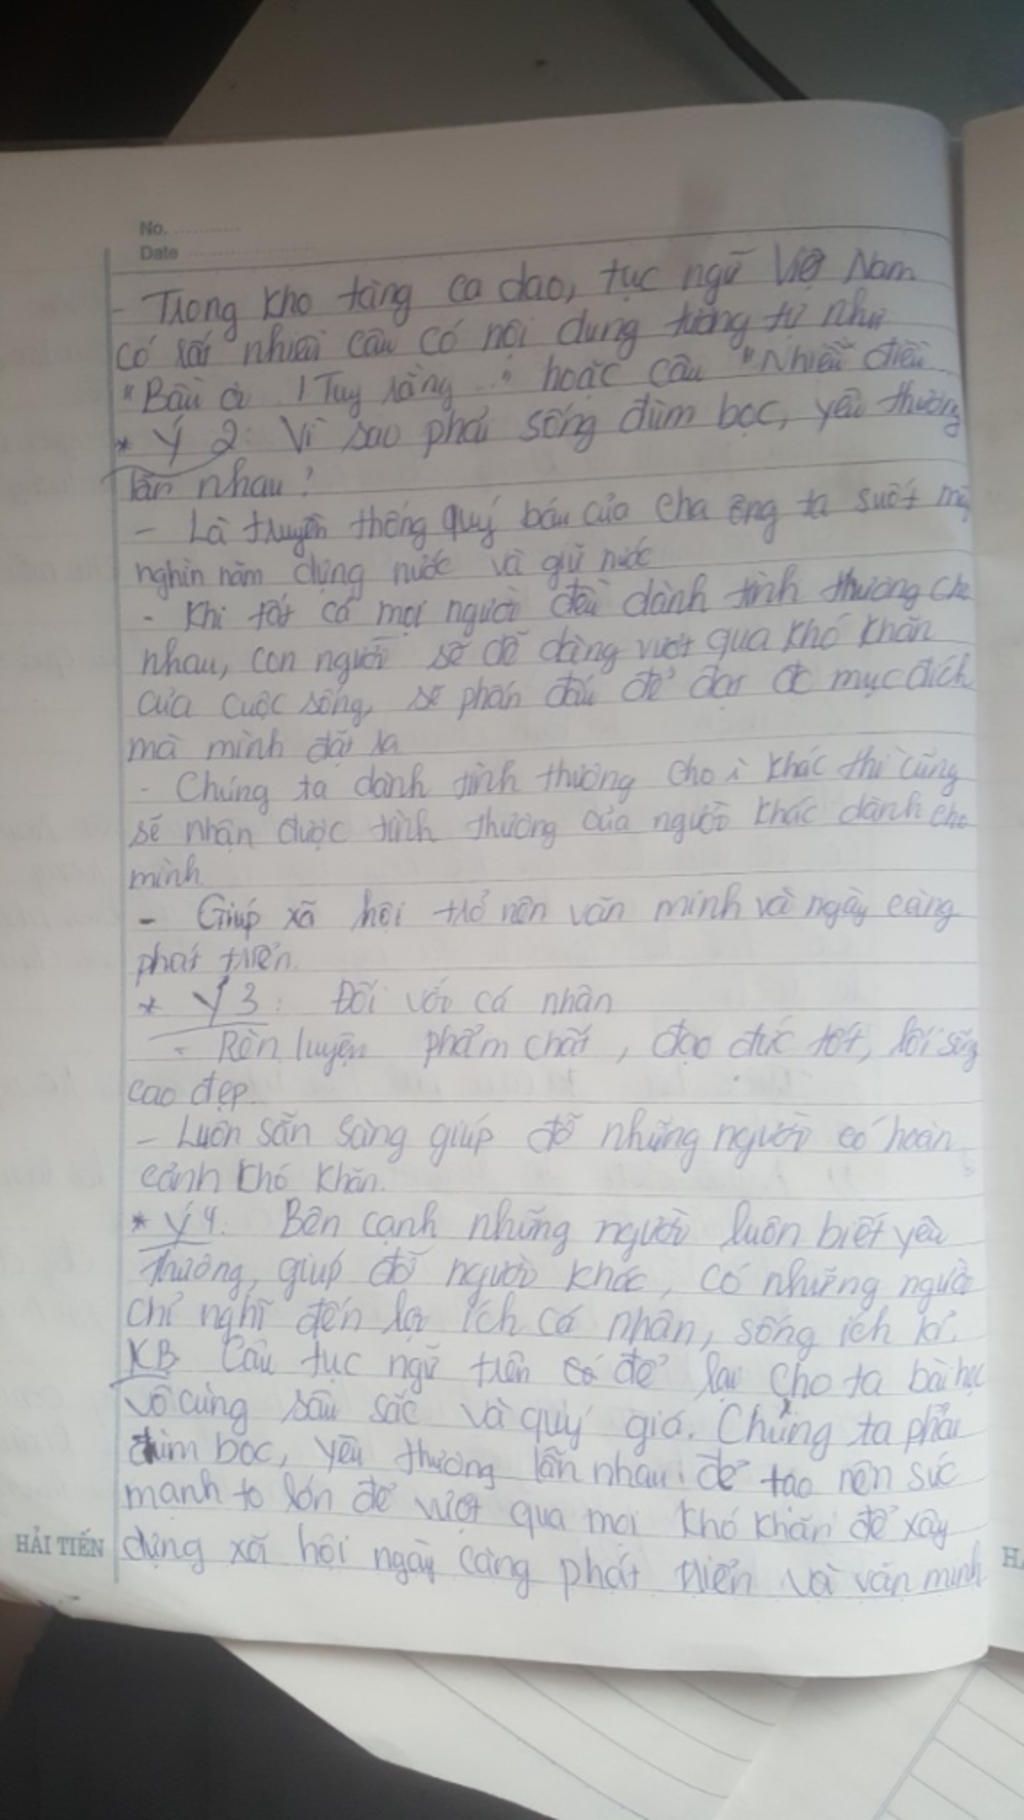 No.
Date
- Trong kho tàng ca dao, tục ngữ Việt Nam
có rất nhiều câu có nội dung tương tự như
"Bầu ơi / Tuy rằng .." hoặc câu "Nhiễu điều..
* Ý 2: Vì sao phải sống đùm bọc, yêu thương
lẫn nhau?
- Là truyền thống quý báu của cha ông ta suốt
nghìn năm dựng nước và giữ nước
- Khi tất cả mọi người đều dành tình thương cho
nhau, con người sẽ dễ dàng vượt qua khó khăn
của cuộc sống, sẽ phấn đấu để đạt đc mục đích
mà mình đặt ra
- Chúng ta dành tình thương cho khác thì cũng
sẽ nhận được tình thương của người khác dành cho
mình.
- Giúp xã hội trở nên văn minh và ngày càng
phát triển.
* Ý 3: Đối với cá nhân
- Rèn luyện phẩm chất, đạo đức tốt, lối sống
cao đẹp.
- Luôn sẵn sàng giúp đỡ những người có hoàn
cảnh khó khăn.
* Ý 4: Bên cạnh những người luôn biết yêu
thương, giúp đỡ người khác, có những người
chỉ nghĩ đến lợi ích cá nhân, sống ích kỉ.
KB Câu tục ngữ trên để lại cho ta bài học
vô cùng sâu sắc và quý giá. Chúng ta phải
đùm bọc, yêu thương lẫn nhau để tạo nên sức
mạnh to lớn để vượt qua mọi khó khăn để xây
dựng xã hội ngày càng phát triển và văn minh
HẢI TIẾN